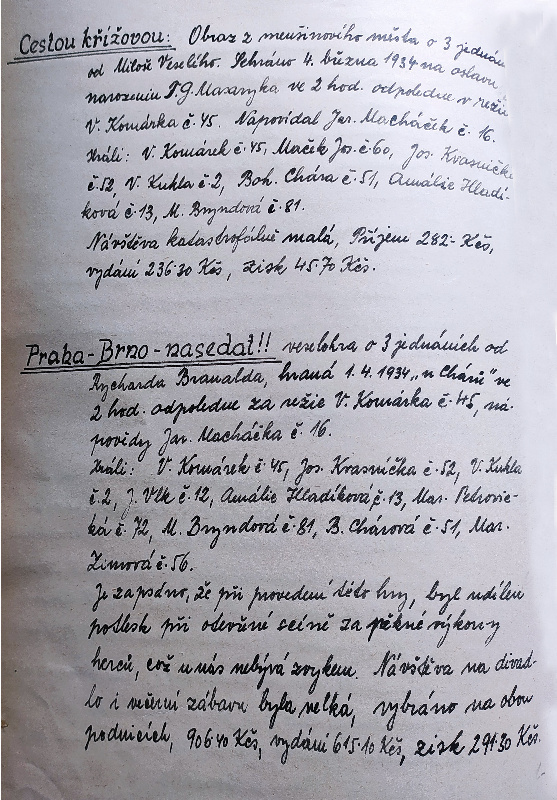 Cestou křížovou: Obraz z menšinového města o 3 jednán
od Miloše Veselého. Sehráno 4. března 1934 na oslavu
narozenin T.G. Masaryka ve 2 hod. odpoledne v režii
V. Komárka č. 45. Napovídal Jar. Macháček č. 16.
Hráli: V. Komárek č. 45, Maček Jos. č. 60, Jos. Kvasnička
č. 52, V. Kukla č. 2, Boh. Chára č. 51, Amálie Hladí-
ková č. 13, M. Bryndová č. 81.
Návštěva katastrofálně malá, Příjem 282·- Kčs,
vydání 236·30 Kčs, zisk 45·70 Kčs.
Praha - Brno - nasedat!! veselohra o 3 jednáních od
Rycharda Branalda, hraná 1. 4. 1934 „u Chárů" ve
2 hod. odpoledne za režie V. Komárka č. 45, ná-
povědy Jar. Macháčka č. 16.
Hráli: V. Komárek č. 45, Jos. Krasnička č. 52, V. Kukla
č. 2, J. Vlk č. 12, Amálie Hladíková č. 13, Mar. Petrovic-
ká č. 72, M. Bryndová č. 81, B. Chárová č. 51, Mar.
Zimová č. 56.
Je zapsáno, že při provedení této hry, byl udílen
potlesk při otevřené scéně za pěkné výkony
herců, což u nás nebývá zvykem. Návštěva na divad-
lo i večerní zábavu byla velká, vybráno na obou
podnicích, 906·40 Kčs, vydání 615·10 Kčs, zisk 291·30 Kčs.